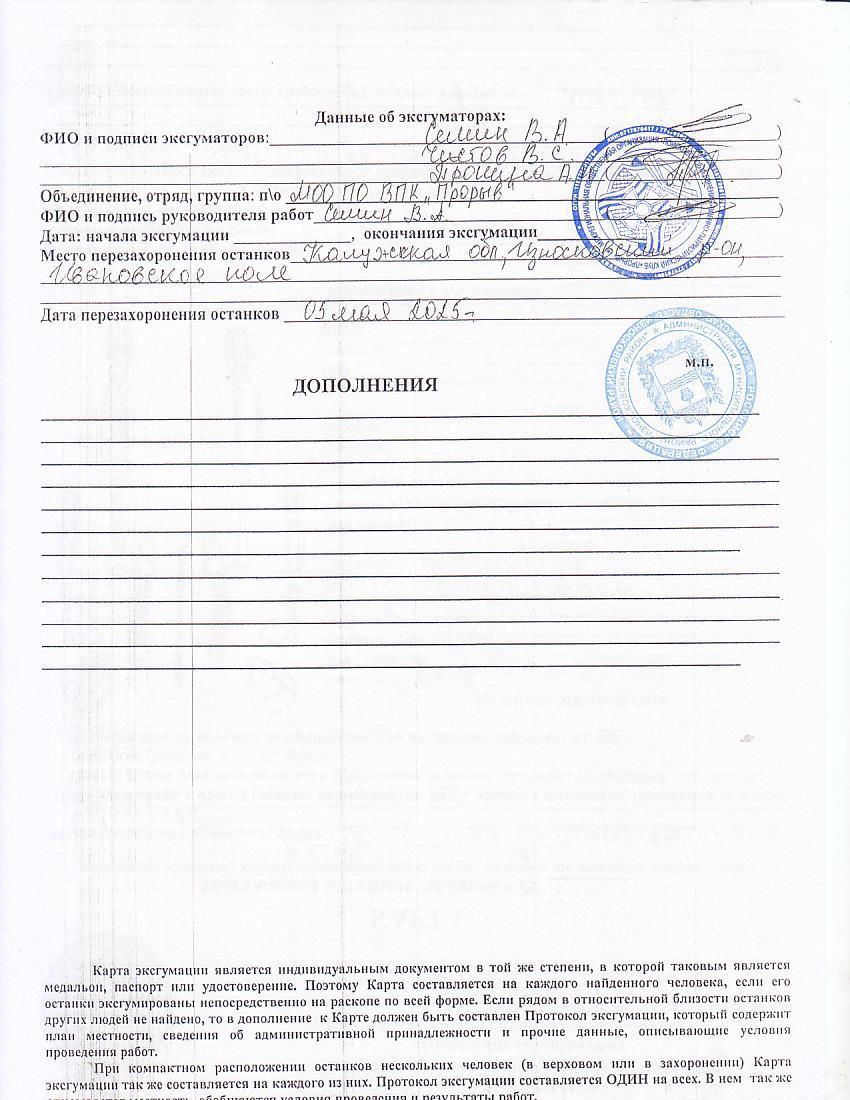 Данные об эксгуматорах:
ФИО и подписи эксгуматоров: Семин В.А ( )
Чистов В.С. ( )
Тронина А. ( )
Объединение, отряд, группа: п\о МОО ПО ВПК „Прорыв"
ФИО и подпись руководителя работ Семин В.А. ( )
Дата: начала эксгумации ______________, окончания эксгумации______________
Место перезахоронения останков Калужская обл, Износковский р-он,
Ивановское поле
Дата перезахоронения останков 05 мая 2025г.
М.П.
АДМИНИСТРАЦИЯ МУНИЦИПАЛЬНОГО РАЙОНА
РОССИЙСКАЯ ФЕДЕРАЦИЯ
ДОПОЛНЕНИЯ
Карта эксгумации является индивидуальным документом в той же степени, в которой таковым является
медальон, паспорт или удостоверение. Поэтому Карта составляется на каждого найденного человека, если его
останки эксгумированы непосредственно на раскопе по всей форме. Если рядом в относительной близости останков
других людей не найдено, то в дополнение к Карте должен быть составлен Протокол эксгумации, который содержит
план местности, сведения об административной принадлежности и прочие данные, описывающие условия
проведения работ.
При компактном расположении останков нескольких человек (в верховом или в захоронении) Карта
эксгумации так же составляется на каждого из них. Протокол эксгумации составляется ОДИН на всех. В нем так же
местность, обобщаются условия проведения и результаты работ.